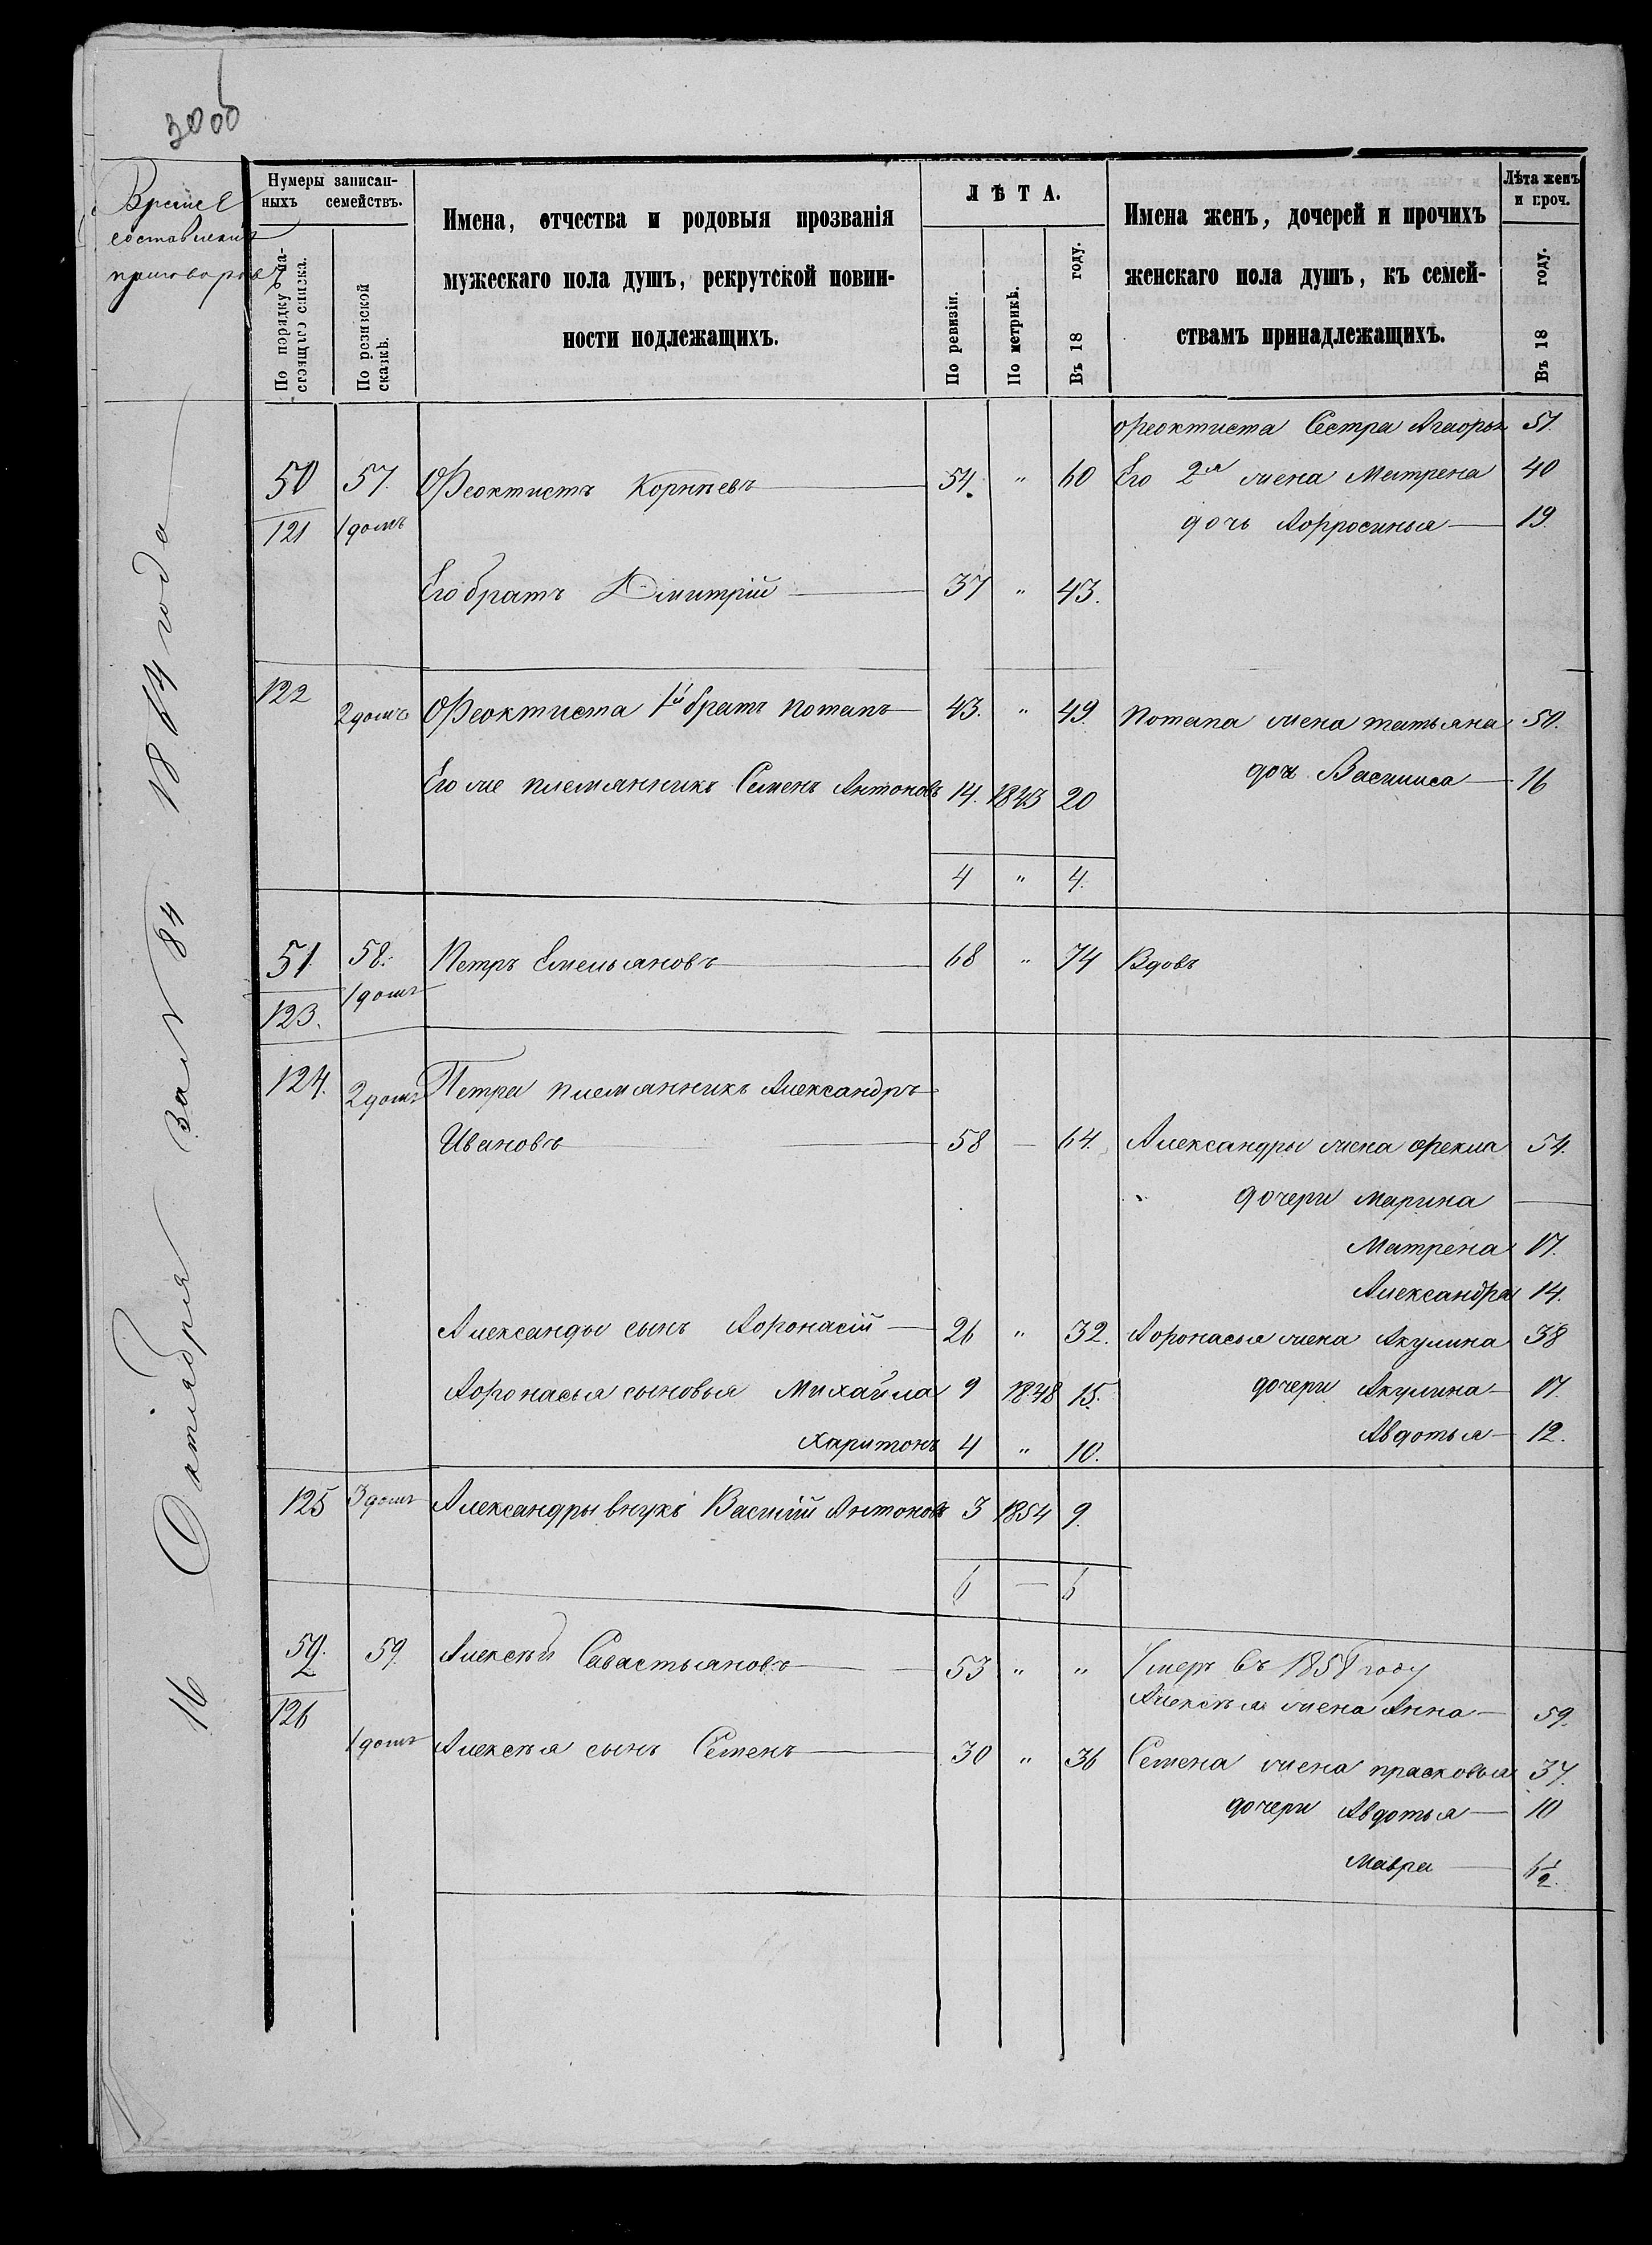 30об
Время
составленія
приговоровъ
Нумеры записан-
ныхъ семействъ.
По порядку на-
стоящаго списка.
По ревизской
сказкѣ.
Имена, отчества и родовыя прозванія
мужескаго пола душъ, рекрутской повин-
ности подлежащихъ.
ЛѢТА.
По ревизіи.
По метрикѣ.
Въ 18 году.
Имена женъ, дочерей и прочихъ
женскаго пола душъ, къ семей-
ствамъ принадлежащихъ.
Лѣта женъ
и проч.
Въ 18 году.
16 Октября за № 84 1864 года
Феоктиста Сестра Агафья 51.
50 57. Феоктистъ Корнѣевъ 54. " 60 Его 2я жена Матрена 40
121 1 домъ дочь Афросинья 19.
Его братъ Дмитрій 37 " 43.
122 2 домъ Феоктиста 1й братъ Потапъ 43. " 49. Потапа жена татьяна 50.
доч. Василиса 16
Его же племянникъ Семенъ Антоновъ 14. 1843 20
4 " 4.
51. 58. Петръ Емельяновъ 68 " 74 Вдовъ
123. 1 домъ
124. 2 домъ Петра племянникъ Александръ
Ивановъ 58 — 64. Александры жена Фекла 54.
" дочери Марина —
Матрена 17.
Александра 14.
Александы сынъ Афонасій 26 " 32. Афонасья жена Акулина 38
Афонасья сыновья Михайла 9 1848 15. дочери Акулина 17.
Харитонъ 4 " 10. Авдотья 12.
125 3 домъ Александры внукъ Василій Антоновъ 3 1854 9.
6 — 6
52. 59. Алексѣй Савастьяновъ 53 " " Умеръ въ 1858 году
126 Алексѣя жена Анна 59.
1 домъ Алексѣя сынъ Семенъ 30 " 36 Семена жена прасковья 37.
дочери Авдотья 10
Мавра 6½.